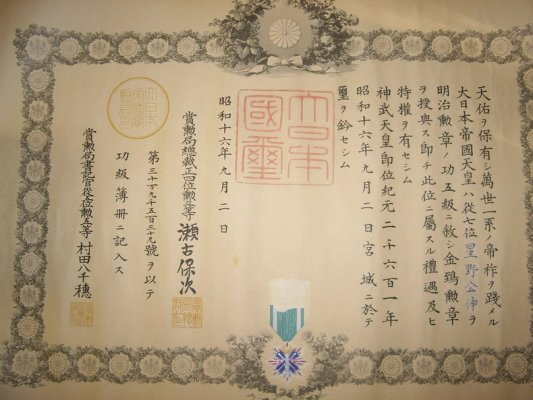 天佑ヲ保有シ萬世一系ノ帝祚ヲ踐メル
大日本帝國天皇ハ從七位星野公伸ヲ
明治勲章ノ功五級ニ敘シ金鵄勲章
ヲ授與ス即チ此位ニ屬スル禮遇及ヒ
特權ヲ有セシム
神武天皇即位紀元二千六百一年
昭和十六年九月二日宮城ニ於テ
璽ヲ鈐セシム
大日本
國璽
昭和十六年九月二日
賞勲局總裁正四位勲二等 瀬古保次
第三十万九千五百三十九號ヲ以テ
功級簿册ニ記入ス
賞勲局書記官從六位勲五等 村田八千穗